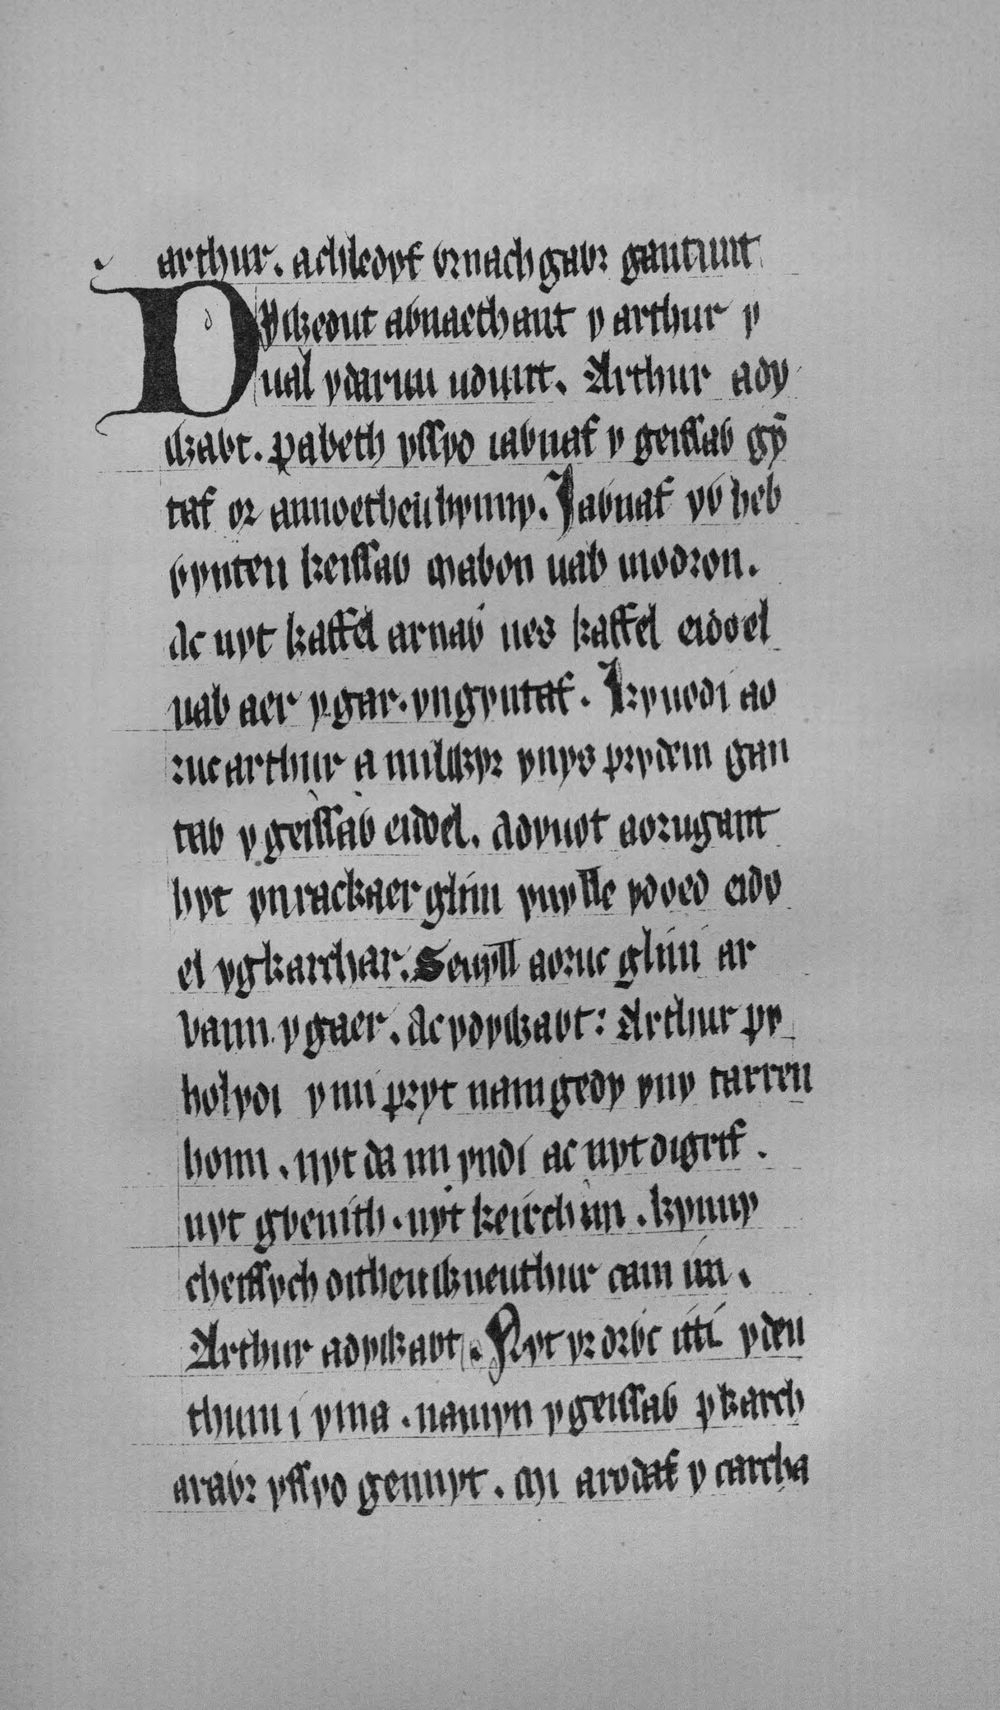 arthur. achledyf ỽrnach gaỽr gantunt
Dywedut aỽnaethant y arthur y
ual ydaruu udunt. Arthur ady
waỽt. pabeth yssyd iaỽnaf y geissaỽ gẏ
taf or annoetheu hynny. Iaỽnaf yỽ heb
ỽynteu keissaỽ mabon uab modron.
Ac nyt kaffel arnaỽ nes kaffel eidoel
uab aer ygar. yngyntaf. Kyuodi ao
ruc arthur a milwyr ynys prydein gan
taỽ y geissaỽ eidoel. adyuot aorugant
hyt ynrackaer gliui ynylle ydoed eido
el ygkarchar. Seuyll aoruc gliui ar
vann ygaer. Ac ydywaỽt: Arthur py
holydi ymi pryt nam gedy yny tarren
honn. nyt da im yndi ac nyt digrif.
nyt gỽenith. nyt keirch im. kynny
cheissych ditheu wneuthur cam im.
Arthur adywaỽt. Nyt yr drỽc itti ydeu
thum i yma. namyn ygeissaỽ ykarch
araỽr yssyd gennyt. Mi arodaf y carcha